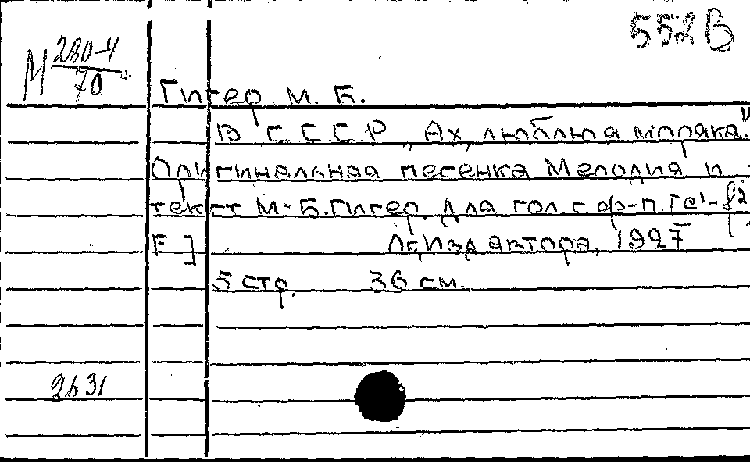 552В
М 280-4
70
Гигер М. Б.
В СССР. "Ах, люблю моряка"
Оригинальная песенка Мелодия и
текст М. Б. Гигер. Для гол. с ф-п. [e¹-f²
F]
Л., Изд. автора, 1927
5 стр. 36 см.